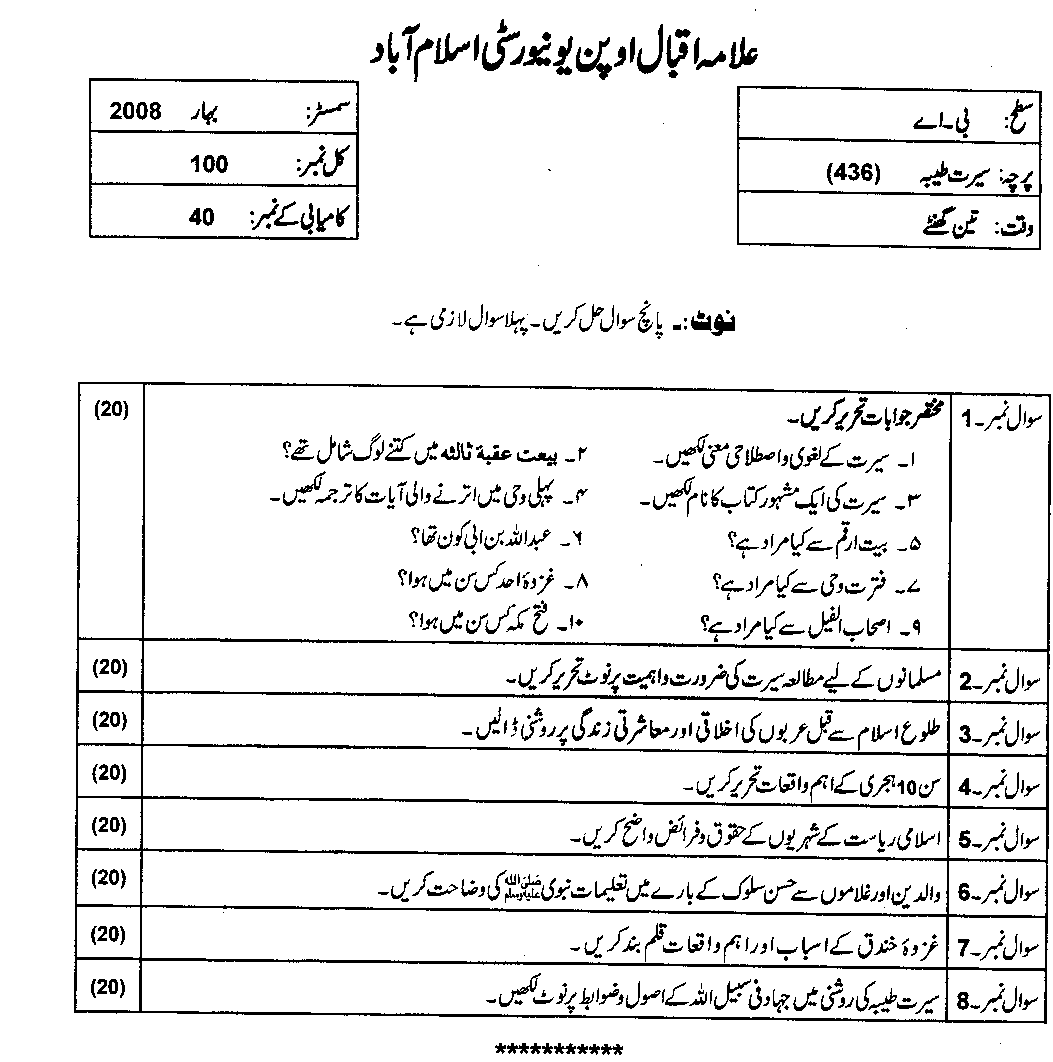 علامہ اقبال اوپن یونیورسٹی اسلام آباد
سطح: بی۔اے
سمسٹر: بہار 2008
پرچہ: سیرت طیبہ (436)
کل نمبر: 100
وقت: تین گھنٹے
کامیابی کے نمبر: 40
نوٹ:۔ پانچ سوال حل کریں۔ پہلا سوال لازمی ہے۔
سوال نمبر۔1 مختصر جوابات تحریر کریں۔ (20)
۱۔ سیرت کے لغوی و اصطلاحی معنی لکھیں۔ ۲۔ بیعت عقبة ثالثه میں کتنے لوگ شامل تھے؟
۳۔ سیرت کی ایک مشہور کتاب کا نام لکھیں۔ ۴۔ پہلی وحی میں اترنے والی آیات کا ترجمہ لکھیں۔
۵۔ بیت ارقم سے کیا مراد ہے؟ ۶۔ عبداللہ بن ابی کون تھا؟
۷۔ فترت وحی سے کیا مراد ہے؟ ۸۔ غزوۂ احد کس سن میں ہوا؟
۹۔ اصحاب الفیل سے کیا مراد ہے؟ ۱۰۔ فتح مکہ کس سن میں ہوا؟
سوال نمبر۔2 مسلمانوں کے لیے مطالعہ سیرت کی ضرورت و اہمیت پر نوٹ تحریر کریں۔ (20)
سوال نمبر۔3 طلوع اسلام سے قبل عربوں کی اخلاقی اور معاشرتی زندگی پر روشنی ڈالیں۔ (20)
سوال نمبر۔4 سن 10 ہجری کے اہم واقعات تحریر کریں۔ (20)
سوال نمبر۔5 اسلامی ریاست کے شہریوں کے حقوق و فرائض واضح کریں۔ (20)
سوال نمبر۔6 والدین اور غلاموں سے حسن سلوک کے بارے میں تعلیمات نبوی ﷺ کی وضاحت کریں۔ (20)
سوال نمبر۔7 غزوۂ خندق کے اسباب اور اہم واقعات قلم بند کریں۔ (20)
سوال نمبر۔8 سیرت طیبہ کی روشنی میں جہاد فی سبیل اللہ کے اصول و ضوابط پر نوٹ لکھیں۔ (20)
***********